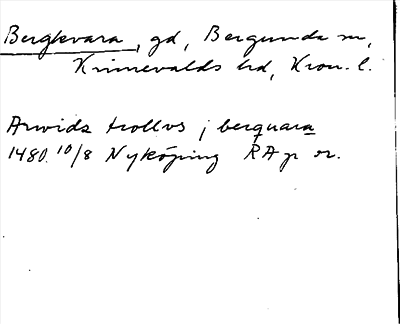 Bergkvara, gd, Bergunda sn,
Kinnevalds hd, Kron. l.
Arvids trollvs j berquara
1480 10/8 Nyköping RA p or.